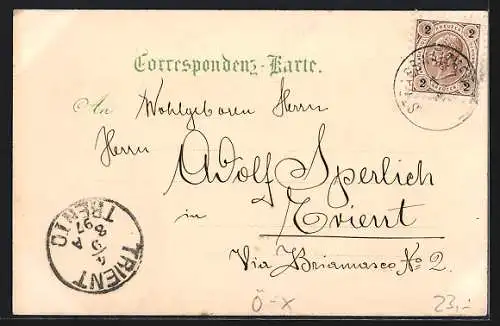 2 KREUZER 2
2 2
Correspondenz-Karte.
An Wohlgeboren Herrn
Herrn Adolf Sperlich
in Trient
Via Briamasco No 2.
TRIENT
4/5
897
A
TRENTO
Ö-X 23,-